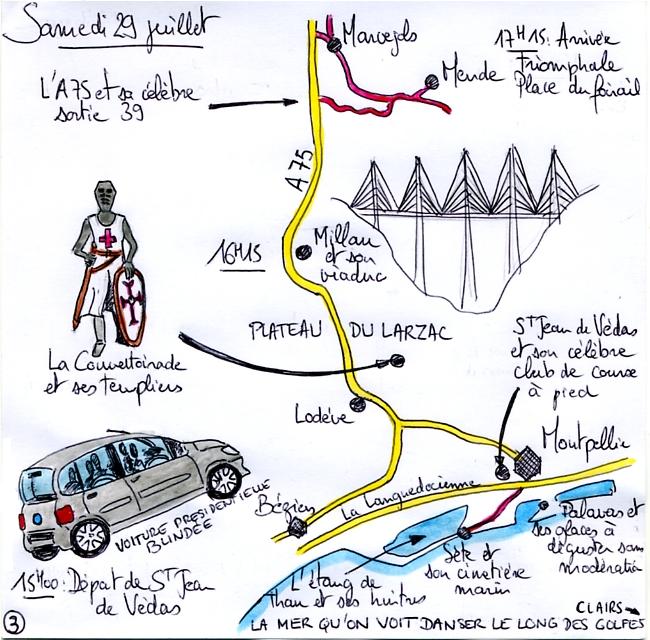 Samedi 29 juillet
Marvejols
17H15: Arrivée
Triomphale
Place du foirail
Mende
L'A75 et sa célèbre
sortie 39
A 75
16H15
Millau
et son
viaduc
PLATEAU DU LARZAC
La Couvertoirade
et ses templiers
St Jean de Védas
et son célèbre
club de course
à pied
Lodève
Montpellier
Béziers
La Languedocienne
VOITURE PRESIDENTIELLE
BLINDÉE
Palavas et
ses glaces à
déguster sans
modération
15H00: Départ de St Jean
de Védas
L'étang de
Thau et ses huîtres
Sète et
son cimetière
marin
3
CLAIRS
LA MER QU'ON VOIT DANSER LE LONG DES GOLFES